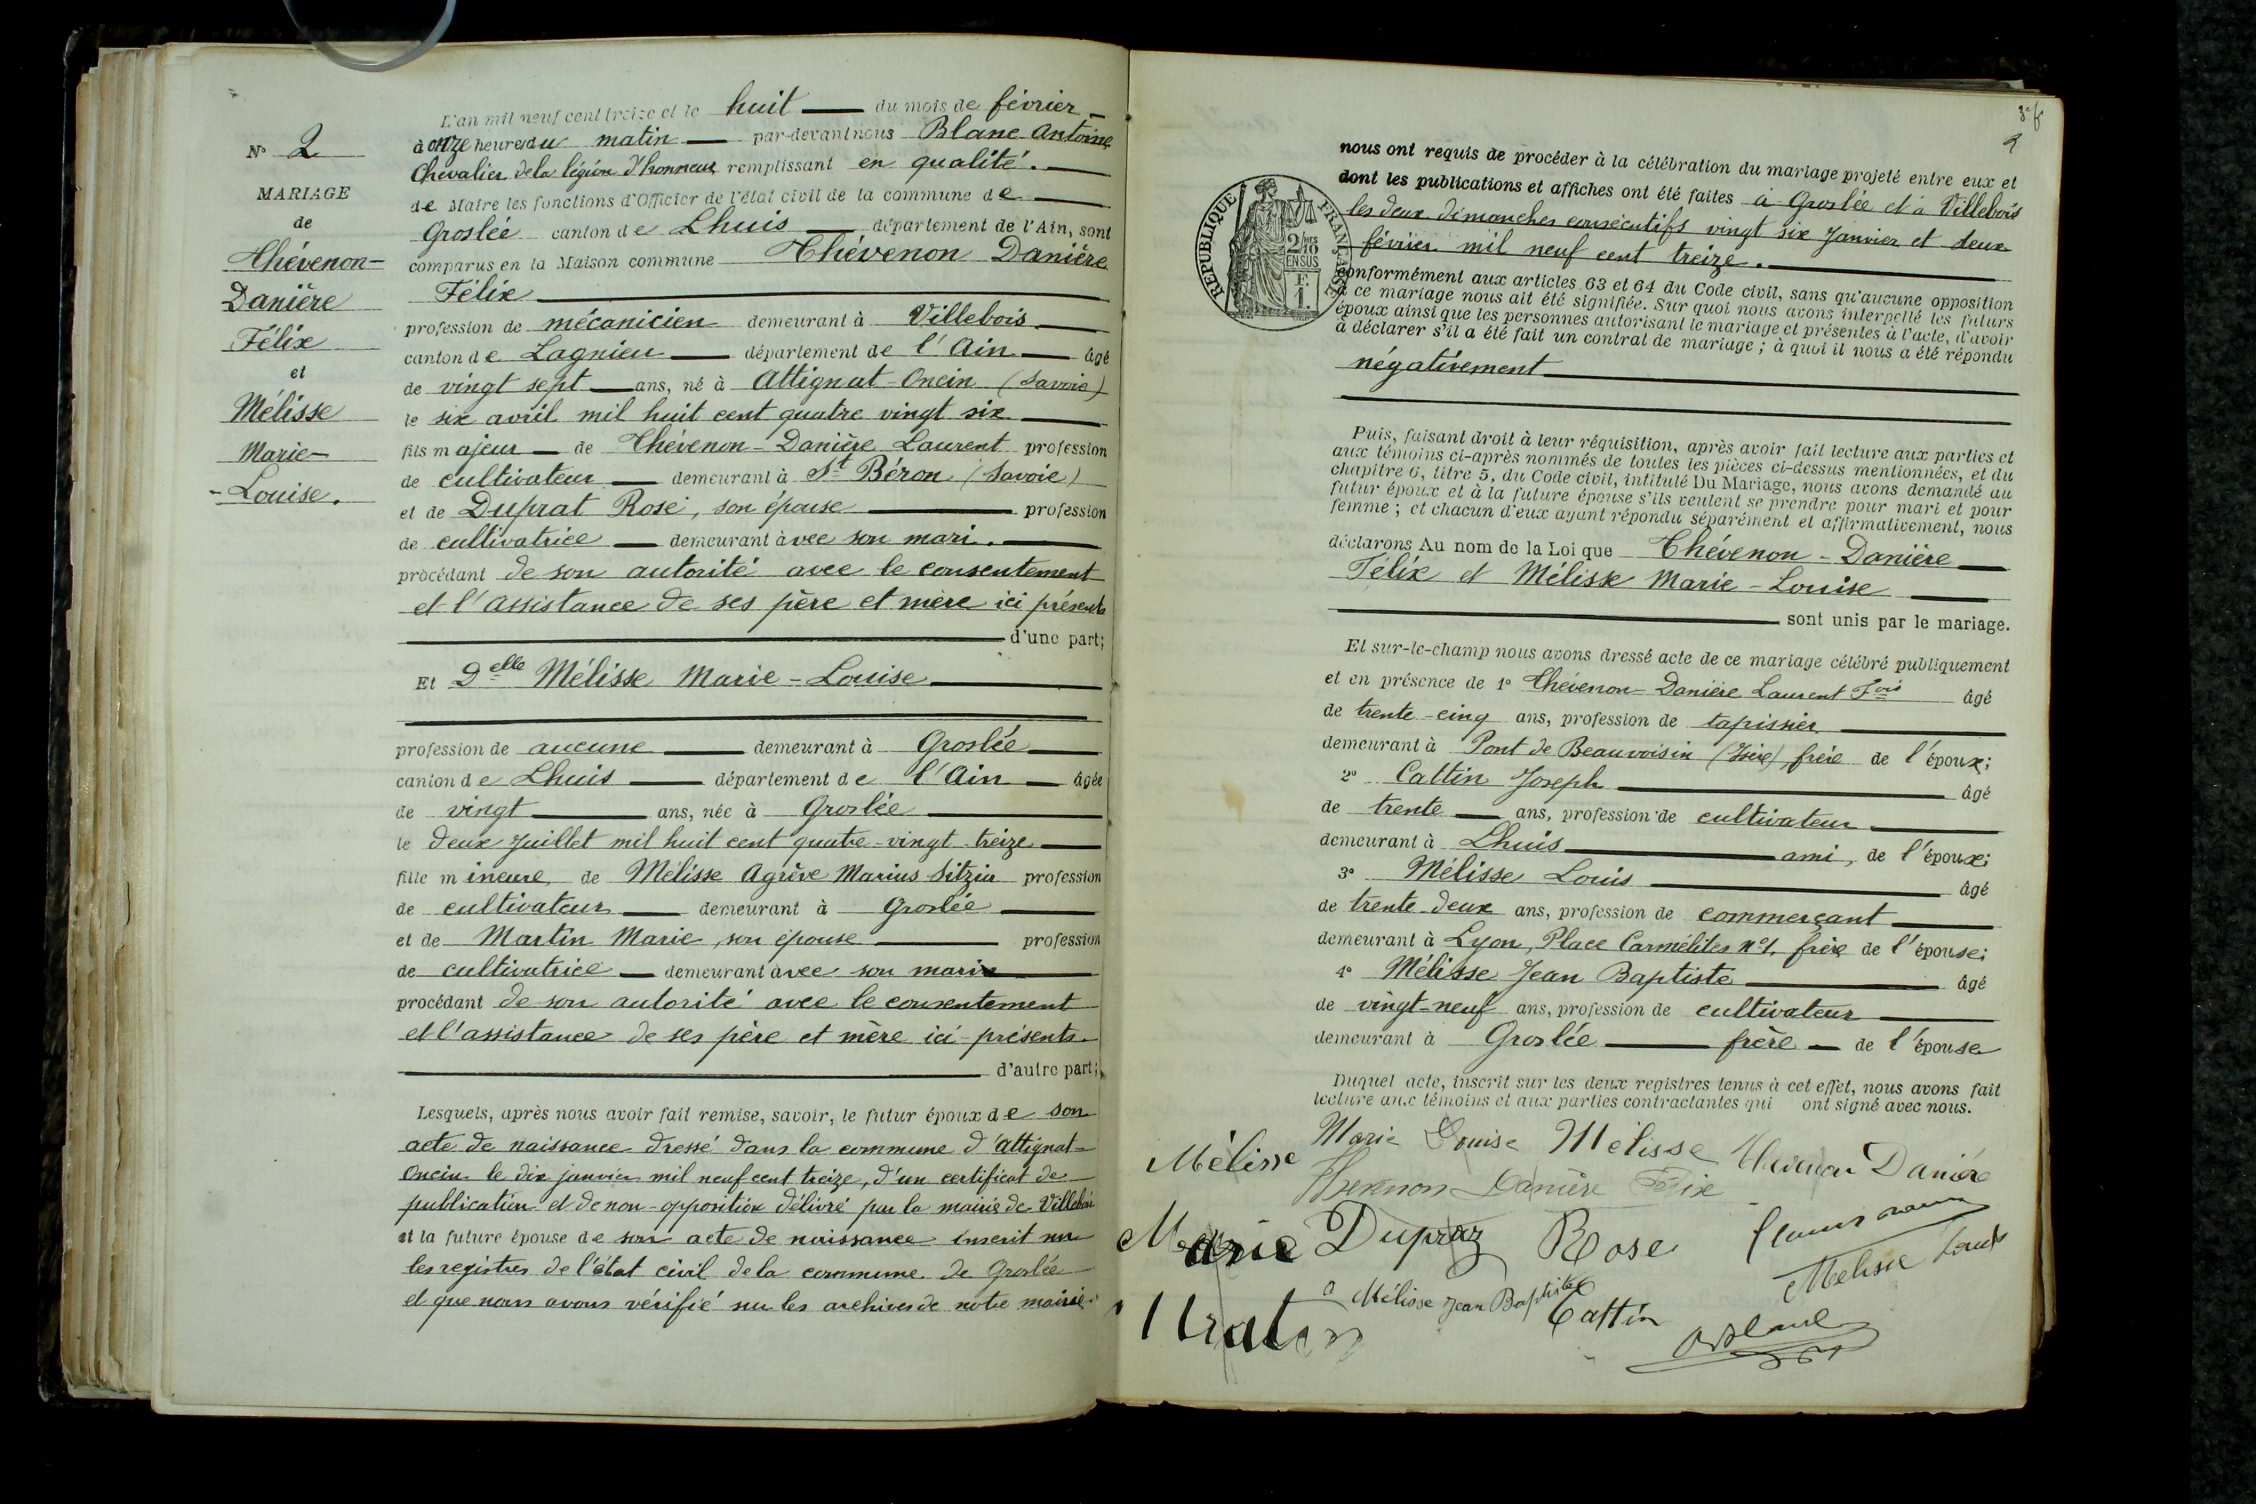 N° 2
MARIAGE
de
Thévenon-
Danière
Félix
et
Mélisse
Marie-
-Louise.
L'an mil neuf cent treize et le huit du mois de février
à onze heures du matin par-devant nous Blanc Antoine
Chevalier de la légion d'honneur remplissant en qualité.
de Maire les fonctions d'Officier de l'état civil de la commune de
Groslée canton de Lhuis département de l'Ain, sont
comparus en la Maison commune Thévenon Danière
Félix
profession de mécanicien demeurant à Villebois
canton de Lagnieu département de l'Ain âgé
de vingt sept ans, né à Attignat-Oncin (Savoie)
le six avril mil huit cent quatre vingt six
fils majeur de Thévenon-Danière Laurent profession
de cultivateur demeurant à St Béron (Savoie)
et de Duprat Rose, son épouse profession
de cultivatrice demeurant avec son mari.
procédant de son autorité avec le consentement
et l'assistance de ses père et mère ici présents
d'une part;
Et Delle Mélisse Marie-Louise
profession de aucune demeurant à Groslée
canton de Lhuis département de l'Ain âgée
de vingt ans, née à Groslée
le deux Juillet mil huit cent quatre-vingt-treize
fille mineure de Mélisse Agrève Marius Sitzia profession
de cultivateur demeurant à Groslée
et de Martin Marie, son épouse profession
de cultivatrice demeurant avec son mari
procédant de son autorité avec le consentement
et l'assistance de ses père et mère ici-présents.
d'autre part;
Lesquels, après nous avoir fait remise, savoir, le futur époux de son
acte de naissance dressé dans la commune d'Attignat-
Oncin le dix janvier mil neuf cent treize, d'un certificat de
publication et de non-opposition délivré par la mairie de Villebois
et la future épouse de son acte de naissance inscrit sur
les registres de l'état civil de la commune de Groslée
et que nous avons vérifié sur les archives de notre mairie.
3e f
nous ont requis de procéder à la célébration du mariage projeté entre eux et
dont les publications et affiches ont été faites à Groslée et à Villebois
les deux dimanches consécutifs vingt six Janvier et deux
février mil neuf cent treize.
RÉPUBLIQUE FRANÇAISE
2/10
EN SUS
F.
1.
conformément aux articles 63 et 64 du Code civil, sans qu'aucune opposition
à ce mariage nous ait été signifiée. Sur quoi nous avons interpellé les futurs
époux ainsi que les personnes autorisant le mariage et présentes à l'acte, d'avoir
à déclarer s'il a été fait un contrat de mariage; à quoi il nous a été répondu
négativement
Puis, faisant droit à leur réquisition, après avoir fait lecture aux parties et
aux témoins ci-après nommés de toutes les pièces ci-dessus mentionnées, et du
chapitre 6, titre 5, du Code civil, intitulé Du Mariage, nous avons demandé au
futur époux et à la future épouse s'ils veulent se prendre pour mari et pour
femme; et chacun d'eux ayant répondu séparément et affirmativement, nous
déclarons Au nom de la Loi que Thévenon-Danière
Félix et Mélisse Marie-Louise
sont unis par le mariage.
Et sur-le-champ nous avons dressé acte de ce mariage célébré publiquement
et en présence de 1° Thévenon-Danière Laurent Fois âgé
de trente-cinq ans, profession de tapissier
demeurant à Pont de Beauvoisin (Isère), frère de l'époux;
2° Cattin Joseph âgé
de trente ans, profession de cultivateur
demeurant à Lhuis ami, de l'époux;
3° Mélisse Louis âgé
de trente-deux ans, profession de commerçant
demeurant à Lyon, Place Carmélites n°1, frère de l'épouse;
4° Mélisse Jean Baptiste âgé
de vingt-neuf ans, profession de cultivateur
demeurant à Groslée frère de l'épouse
Duquel acte, inscrit sur les deux registres tenus à cet effet, nous avons fait
lecture aux témoins et aux parties contractantes qui ont signé avec nous.
Mélisse Marie Louise Mélisse Thévenon Danière
Thevenon Danière Félix
Marie Dupraz Rose
Mélisse Louis
Mélisse Jean Baptiste Cattin
ABlanc